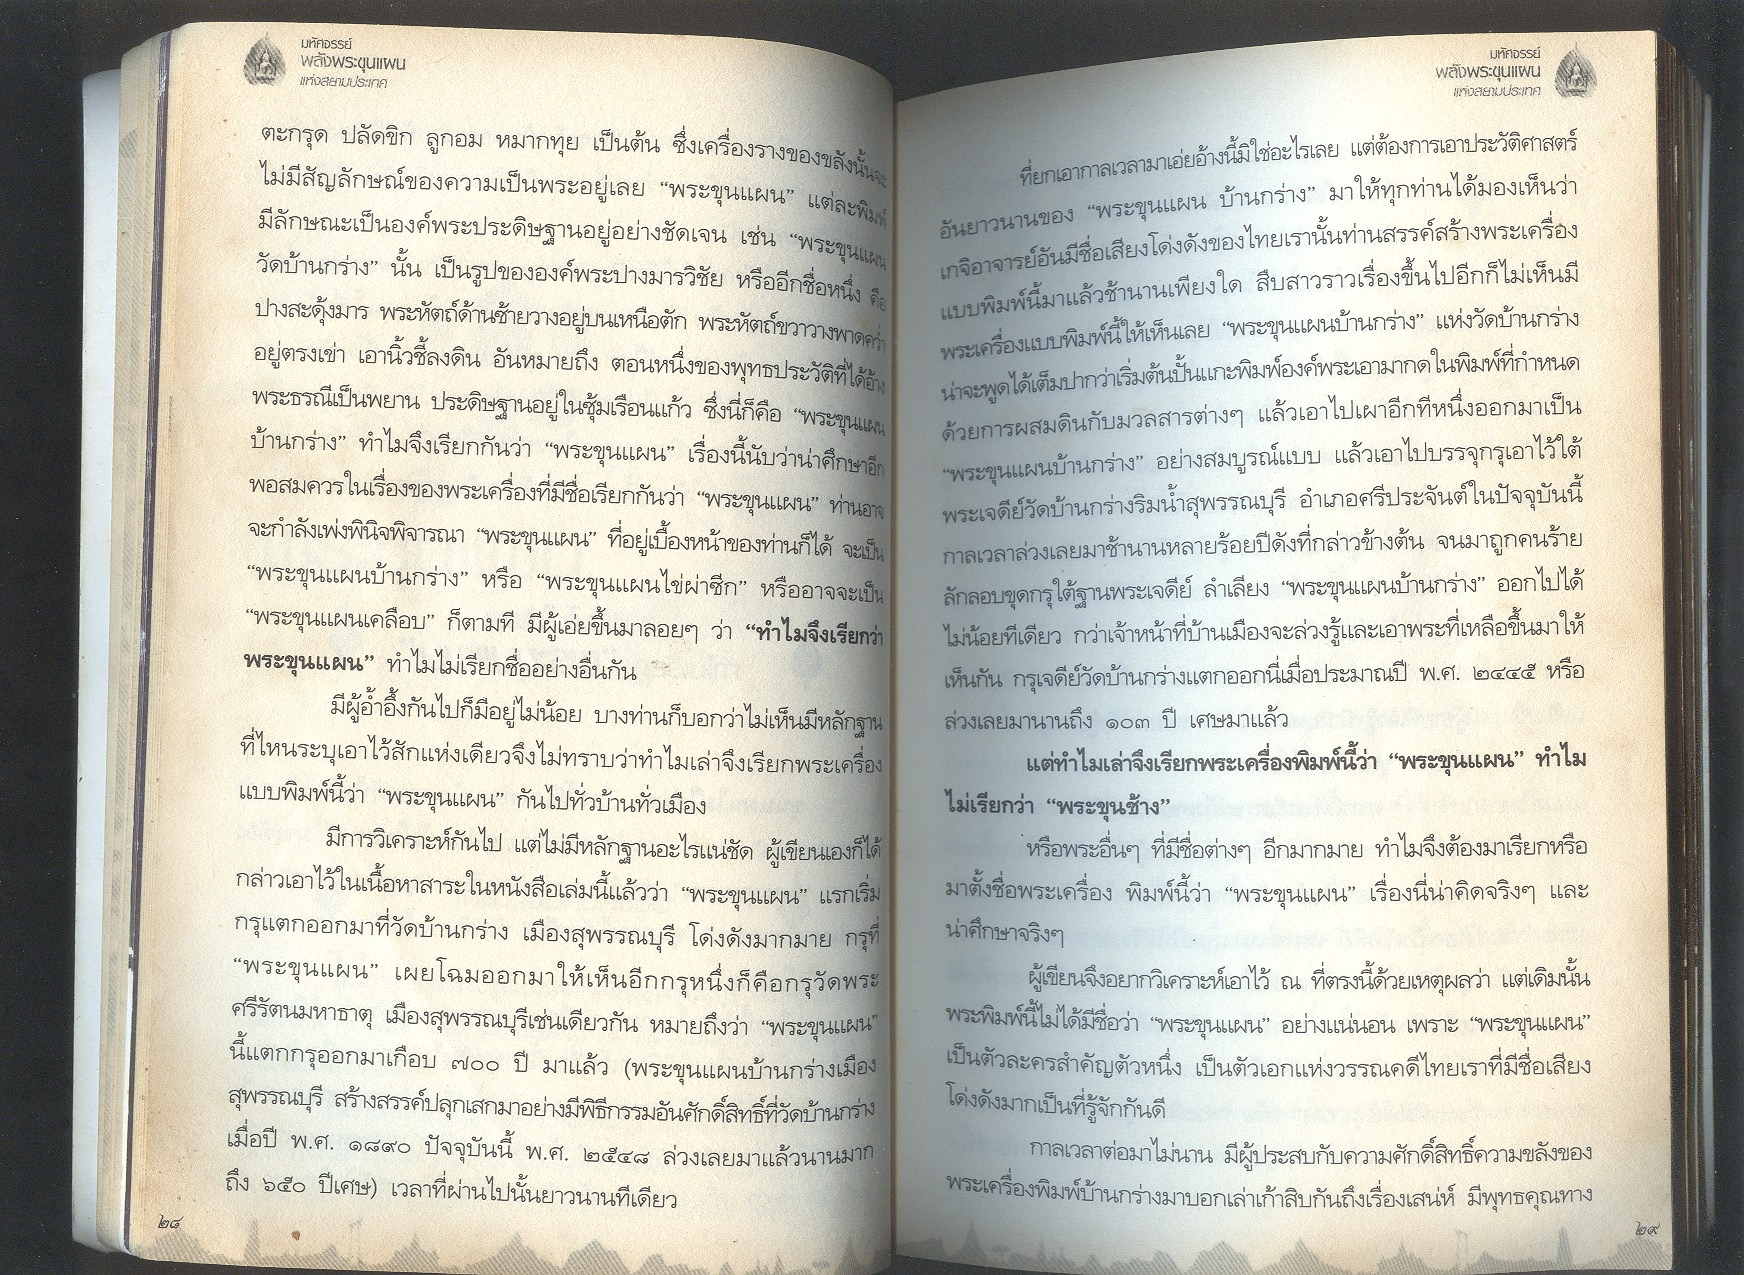 มหัศจรรย์
พลังพระขุนแผน
แห่งสยามประเทศ
ตะกรุด ปลัดขิก ลูกอม หมากทุย เป็นต้น ซึ่งเครื่องรางของขลังนั้นจะ
ไม่มีสัญลักษณ์ของความเป็นพระอยู่เลย “พระขุนแผน” แต่ละพิมพ์
มีลักษณะเป็นองค์พระประดิษฐานอยู่อย่างชัดเจน เช่น “พระขุนแผน
วัดบ้านกร่าง” นั้น เป็นรูปขององค์พระปางมารวิชัย หรืออีกชื่อหนึ่ง คือ
ปางสะดุ้งมาร พระหัตถ์ด้านซ้ายวางอยู่บนเหนือตัก พระหัตถ์ขวาวางพาดคว่ำ
อยู่ตรงเข่า เอานิ้วชี้ลงดิน อันหมายถึง ตอนหนึ่งของพุทธประวัติที่ได้อ้าง
พระธรณีเป็นพยาน ประดิษฐานอยู่ในซุ้มเรือนแก้ว ซึ่งนี่ก็คือ “พระขุนแผน
บ้านกร่าง” ทำไมจึงเรียกกันว่า “พระขุนแผน” เรื่องนี้นับว่าน่าศึกษาอีก
พอสมควรในเรื่องของพระเครื่องที่มีชื่อเรียกกันว่า “พระขุนแผน” ท่านอาจ
จะกำลังเพ่งพินิจพิจารณา “พระขุนแผน” ที่อยู่เบื้องหน้าของท่านก็ได้ จะเป็น
“พระขุนแผนบ้านกร่าง” หรือ “พระขุนแผนไข่ผ่าซีก” หรืออาจจะเป็น
“พระขุนแผนเคลือบ” ก็ตามที มีผู้เอ่ยขึ้นมาลอยๆ ว่า “ทำไมจึงเรียกว่า
พระขุนแผน” ทำไมไม่เรียกชื่ออย่างอื่นกัน
มีผู้อ้ำอึ้งกันไปก็มีอยู่ไม่น้อย บางท่านก็บอกว่าไม่เห็นมีหลักฐาน
ที่ไหนระบุเอาไว้สักแห่งเดียวจึงไม่ทราบว่าทำไมเล่าจึงเรียกพระเครื่อง
แบบพิมพ์นี้ว่า “พระขุนแผน” กันไปทั่วบ้านทั่วเมือง
มีการวิเคราะห์กันไป แต่ไม่มีหลักฐานอะไรแน่ชัด ผู้เขียนเองก็ได้
กล่าวเอาไว้ในเนื้อหาสาระในหนังสือเล่มนี้แล้วว่า “พระขุนแผน” แรกเริ่ม
กรุแตกออกมาที่วัดบ้านกร่าง เมืองสุพรรณบุรี โด่งดังมากมาย กรุที่
“พระขุนแผน” เผยโฉมออกมาให้เห็นอีกกรุหนึ่งก็คือกรุวัดพระ
ศรีรัตนมหาธาตุ เมืองสุพรรณบุรีเช่นเดียวกัน หมายถึงว่า “พระขุนแผน”
นี้แตกกรุออกมาเกือบ ๗๐๐ ปี มาแล้ว (พระขุนแผนบ้านกร่างเมือง
สุพรรณบุรี สร้างสรรค์ปลุกเสกมาอย่างมีพิธีกรรมอันศักดิ์สิทธิ์ที่วัดบ้านกร่าง
เมื่อปี พ.ศ. ๑๘๙๐ ปัจจุบันนี้ พ.ศ. ๒๕๔๘ ล่วงเลยมาแล้วนานมาก
ถึง ๖๕๐ ปีเศษ) เวลาที่ผ่านไปนั้นยาวนานทีเดียว
๒๘
มหัศจรรย์
พลังพระขุนแผน
แห่งสยามประเทศ
ที่ยกเอากาลเวลามาเอ่ยอ้างนี้มิใช่อะไรเลย แต่ต้องการเอาประวัติศาสตร์
อันยาวนานของ “พระขุนแผน บ้านกร่าง” มาให้ทุกท่านได้มองเห็นว่า
เกจิอาจารย์อันมีชื่อเสียงโด่งดังของไทยเรานั้นท่านสรรค์สร้างพระเครื่อง
แบบพิมพ์นี้มาแล้วช้านานเพียงใด สืบสาวราวเรื่องขึ้นไปอีกก็ไม่เห็นมี
พระเครื่องแบบพิมพ์นี้ให้เห็นเลย “พระขุนแผนบ้านกร่าง” แห่งวัดบ้านกร่าง
น่าจะพูดได้เต็มปากว่าเริ่มต้นปั้นแกะพิมพ์องค์พระเอามากดในพิมพ์ที่กำหนด
ด้วยการผสมดินกับมวลสารต่างๆ แล้วเอาไปเผาอีกทีหนึ่งออกมาเป็น
“พระขุนแผนบ้านกร่าง” อย่างสมบูรณ์แบบ แล้วเอาไปบรรจุกรุเอาไว้ใต้
พระเจดีย์วัดบ้านกร่างริมน้ำสุพรรณบุรี อำเภอศรีประจันต์ในปัจจุบันนี้
กาลเวลาล่วงเลยมาช้านานหลายร้อยปีดังที่กล่าวข้างต้น จนมาถูกคนร้าย
ลักลอบขุดกรุใต้ฐานพระเจดีย์ ลำเลียง “พระขุนแผนบ้านกร่าง” ออกไปได้
ไม่น้อยทีเดียว กว่าเจ้าหน้าที่บ้านเมืองจะล่วงรู้และเอาพระที่เหลือขึ้นมาให้
เห็นกัน กรุเจดีย์วัดบ้านกร่างแตกออกนี่เมื่อประมาณปี พ.ศ. ๒๔๔๕ หรือ
ล่วงเลยมานานถึง ๑๐๓ ปี เศษมาแล้ว
แต่ทำไมเล่าจึงเรียกพระเครื่องพิมพ์นี้ว่า “พระขุนแผน” ทำไม
ไม่เรียกว่า “พระขุนช้าง”
หรือพระอื่นๆ ที่มีชื่อต่างๆ อีกมากมาย ทำไมจึงต้องมาเรียกหรือ
มาตั้งชื่อพระเครื่อง พิมพ์นี้ว่า “พระขุนแผน” เรื่องนี่น่าคิดจริงๆ และ
น่าศึกษาจริงๆ
ผู้เขียนจึงอยากวิเคราะห์เอาไว้ ณ ที่ตรงนี้ด้วยเหตุผลว่า แต่เดิมนั้น
พระพิมพ์นี้ไม่ได้มีชื่อว่า “พระขุนแผน” อย่างแน่นอน เพราะ “พระขุนแผน”
เป็นตัวละครสำคัญตัวหนึ่ง เป็นตัวเอกแห่งวรรณคดีไทยเราที่มีชื่อเสียง
โด่งดังมากเป็นที่รู้จักกันดี
กาลเวลาต่อมาไม่นาน มีผู้ประสบกับความศักดิ์สิทธิ์ความขลังของ
พระเครื่องพิมพ์บ้านกร่างมาบอกเล่าเก้าสิบกันถึงเรื่องเสน่ห์ มีพุทธคุณทาง
๒๙